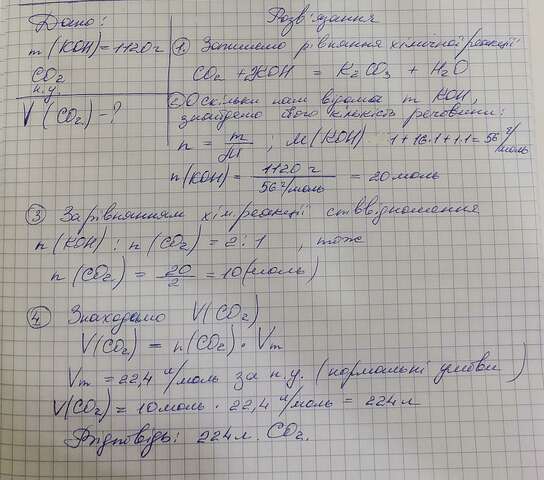 Дано:
m(KOH)=1120г
CO₂
н.у.
V(CO₂)-?
Розв'язання
1. Запишемо рівняння хімічної реакції
CO₂ + 2KOH = K₂CO₃ + H₂O
2. Оскільки нам відома m KOH,
знайдемо його кількість речовини:
n = m/M ; M(KOH) 1+16·1+1·1=56 г/моль
n(KOH)= 1120 г / 56 г/моль = 20 моль
3 За рівнянням хім.реакції співвідношення
n(KOH) : n(CO₂) = 2:1 , тож
n(CO₂) = 20/2 = 10(моль)
4 Знаходимо V(CO₂)
V(CO₂) = n(CO₂)·Vm
Vm = 22,4 л/моль за н.у. (нормальні умови)
V(CO₂) = 10моль · 22,4 л/моль = 224 л
Відповідь: 224л. CO₂.